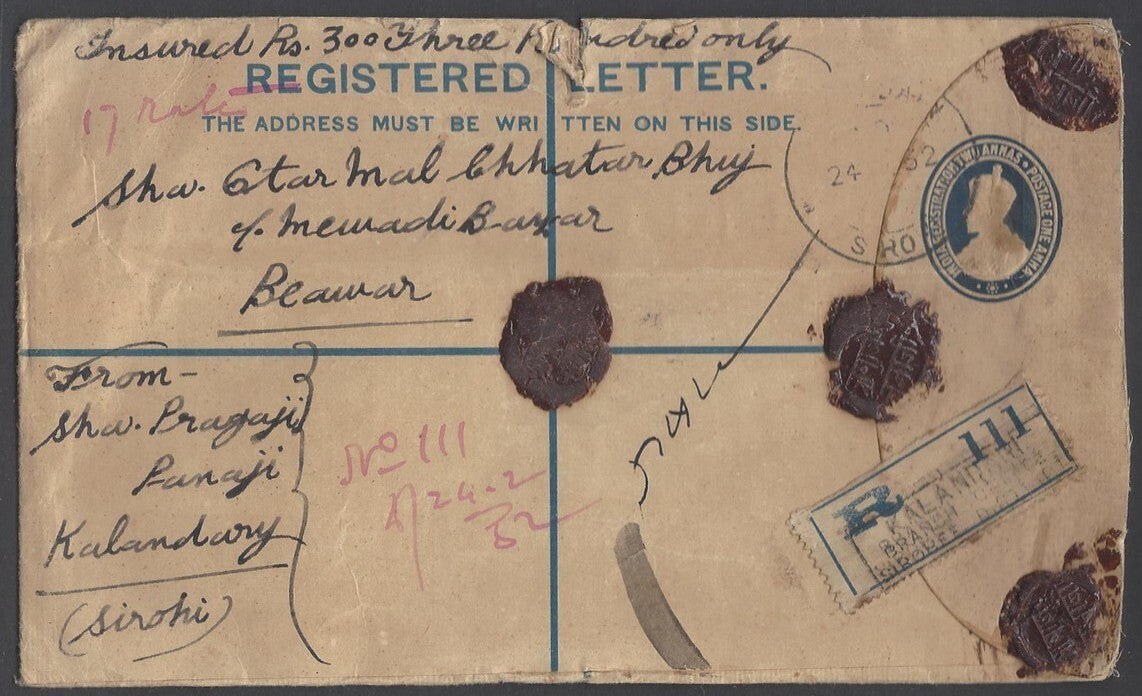 Insured Rs. 300 Three Hundred only
REGISTERED LETTER.
THE ADDRESS MUST BE WRITTEN ON THIS SIDE.
Sha. Otar Mal Chhatar Bhuj
c/o Mewadi Bazar
Beawar
24
SIRO
INDIA REGISTRATION TWO ANNAS • POSTAGE ONE ANNA
From-
Sha. Pragaji
Panaji
Kalandary
(Sirohi)
No 111
24-2
32
R 111
KALANDRI
BRANCH